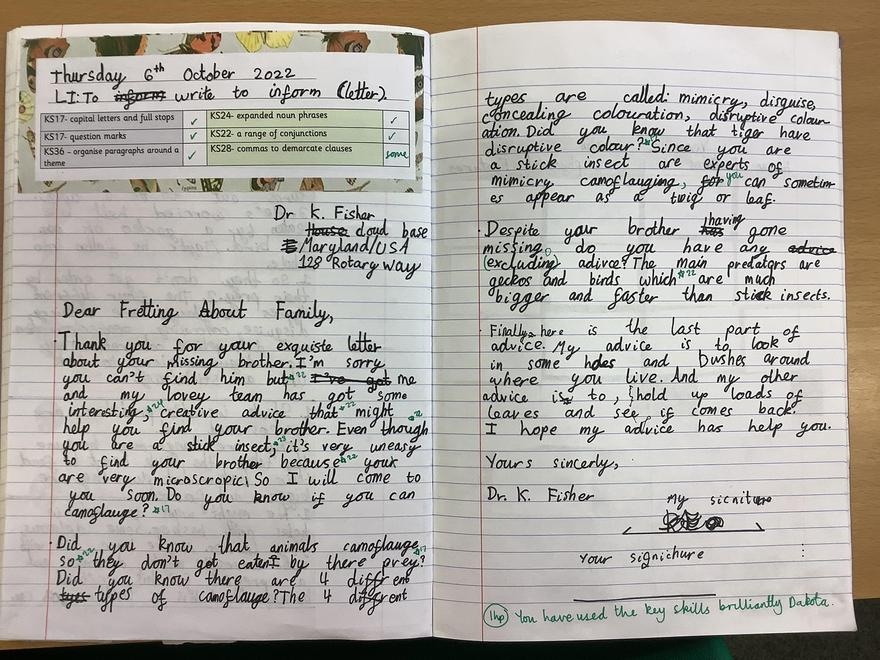 Thursday 6th October 2022
LI: To inform write to inform (letter).
KS17- capital letters and full stops ✓ KS24- expanded noun phrases ✓
KS17- question marks ✓ KS22- a range of conjunctions ✓
KS36 – organise paragraphs around a theme ✓ KS28- commas to demarcate clauses some
Dr K. Fisher
House cloud base
Maryland/USA
128 Rotary way
Dear Fretting About Family,
Thank you for your exquiste letter
about your missing brother. I'm sorry
you can't find him but I've got me
and my lovey team has got some
interesting, creative advice that might
help you find your brother. Even though
you are a stick insect, it's very uneasy
to find your brother because your
are very microscropic! So I will come to
you soon. Do you know if you can
camoflauge?
Did you know that animals camoflauge
so they don't got eaten by there prey?
Did you know there are 4 diffrent
tyes types of camoflauge? The 4 diffrent
types are called: mimicry, disguise,
concealing colouration, disruptive colour-
ation. Did you know that tiger have
disruptive colour? Since you are
a stick insect are experts of
mimicry camoflauging, for you can sometim-
es appear as a twig or leaf.
Despite your brother has having gone
missing, do you have any advice
(excluding) adivce? The main predators are
geckos and birds which are much
bigger and faster than stick insects.
Finally here is the last part of
advice. My advice is to look
in some holes and bushes around
where you live. And my other
advice is to, hold up loads of
leaves and see if comes back.
I hope my advice has help you.
Yours sincerly,
Dr. K. Fisher
my sicniture
your signichure
1hp You have used the key skills brilliantly Dakota.